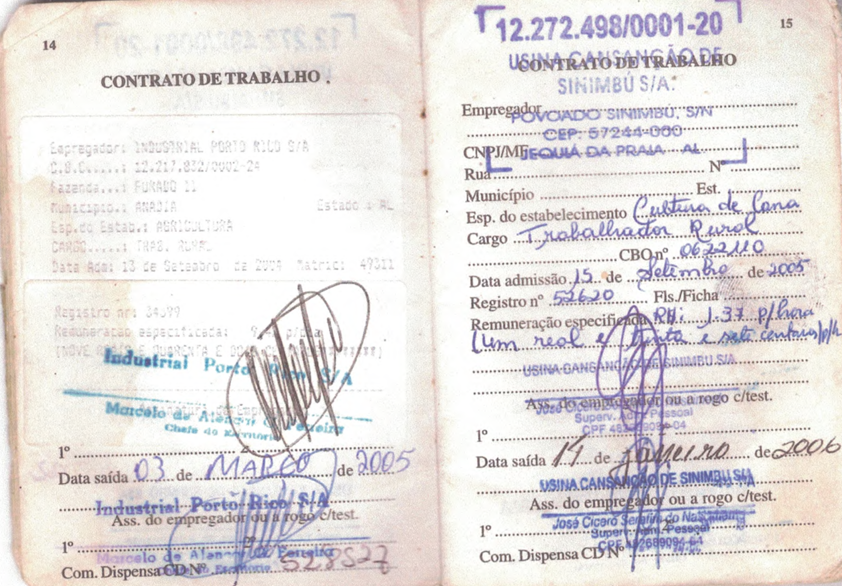 14
CONTRATO DE TRABALHO
Empregador: INDUSTRIAL PORTO RICO S/A
C.G.C.....: 12.217.832/0002-24
Fazenda...: FURADO II
Municipio.: ANADIA Estado : AL
Esp.do Estab.: AGRICULTURA
CARGO.....: TRAB. RURAL
Data Adm: 13 de Setembro de 2004 Matric: 49311
Registro nr:
Remuneracao especificada:
Industrial Porto Rico S/A
Marcelo de Alencar Ferreira
Chefe do Escritorio
1º
Data saída 03 de MARÇO de 2005
Industrial Porto Rico S/A
Ass. do empregador ou a rogo c/test.
1º 2º
Marcelo de Alencar Ferreira
Com. Dispensa CD Nº 528527
15
12.272.498/0001-20
USINA CANSANÇÃO DE
CONTRATO DE TRABALHO
SINIMBÚ S/A.
Empregador
POVOADO SINIMBÚ, S/N
CEP: 57244-000
CNPJ/MF
JEQUIÁ DA PRAIA AL
Rua Nº
Município Est.
Esp. do estabelecimento Cultura de Cana
Cargo Trabalhador Rural
CBO nº 0622110
Data admissão 15 de Setembro de 2005
Registro nº 52620 Fls./Ficha
Remuneração especificada R$: 1.37 p/hora
(um real e trinta e sete centavos p/h
USINA CANSANÇÃO DE SINIMBU S/A
Ass. do empregador ou a rogo c/test.
Superv. Adm. Pessoal
1º
Data saída 14 de Janeiro de 2006
USINA CANSANÇÃO DE SINIMBU S/A
Ass. do empregador ou a rogo c/test.
José Cicero Serafim do Nascimento
Superv. Adm. Pessoal
1º
Com. Dispensa CD Nº